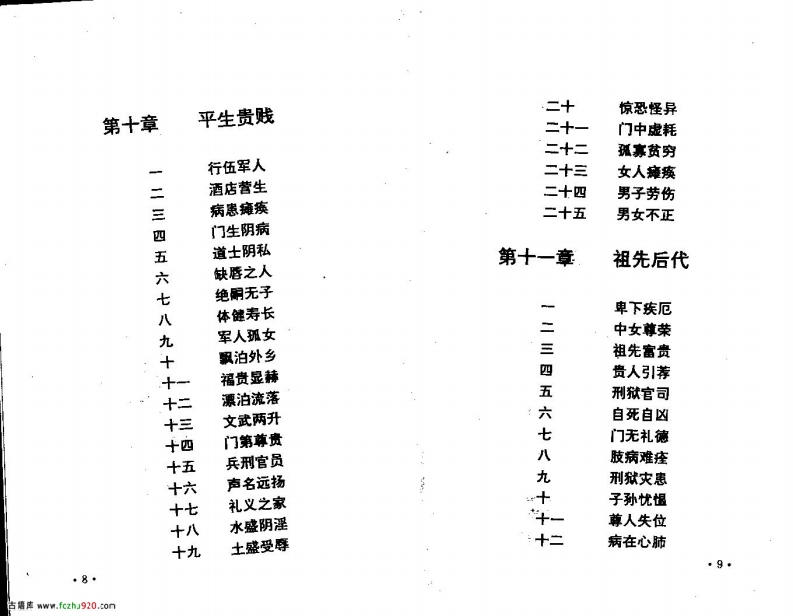 第十章 平生贵贱
一 行伍军人
二 酒店营生
三 病患瘫痪
四 门生阴病
五 道士阴私
六 缺唇之人
七 绝嗣无子
八 体健寿长
九 军人孤女
十 飘泊外乡
十一 福贵显赫
十二 漂泊流落
十三 文武两升
十四 门第尊贵
十五 兵刑官员
十六 声名远扬
十七 礼义之家
十八 水盛阴淫
十九 土盛受辱
·8·
二十 惊恐怪异
二十一 门中虚耗
二十二 孤寡贫穷
二十三 女人瘫痪
二十四 男子劳伤
二十五 男女不正
第十一章 祖先后代
一 卑下疾厄
二 中女尊荣
三 祖先富贵
四 贵人引荐
五 刑狱官司
六 自死自凶
七 门无礼德
八 肢病难痊
九 刑狱灾患
十 子孙忧愠
十一 尊人失位
十二 病在心肺
·9·
古籍库 www.fczhu920.com